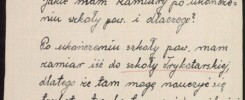 jakie mam zamiary po ukończe-
niu szkoły pow. i dlaczego?
Po ukończeniu szkoły pow. mam
zamiar iść do szkoły Trykotarskiej,
dlatego że tam mogę nauczyć się